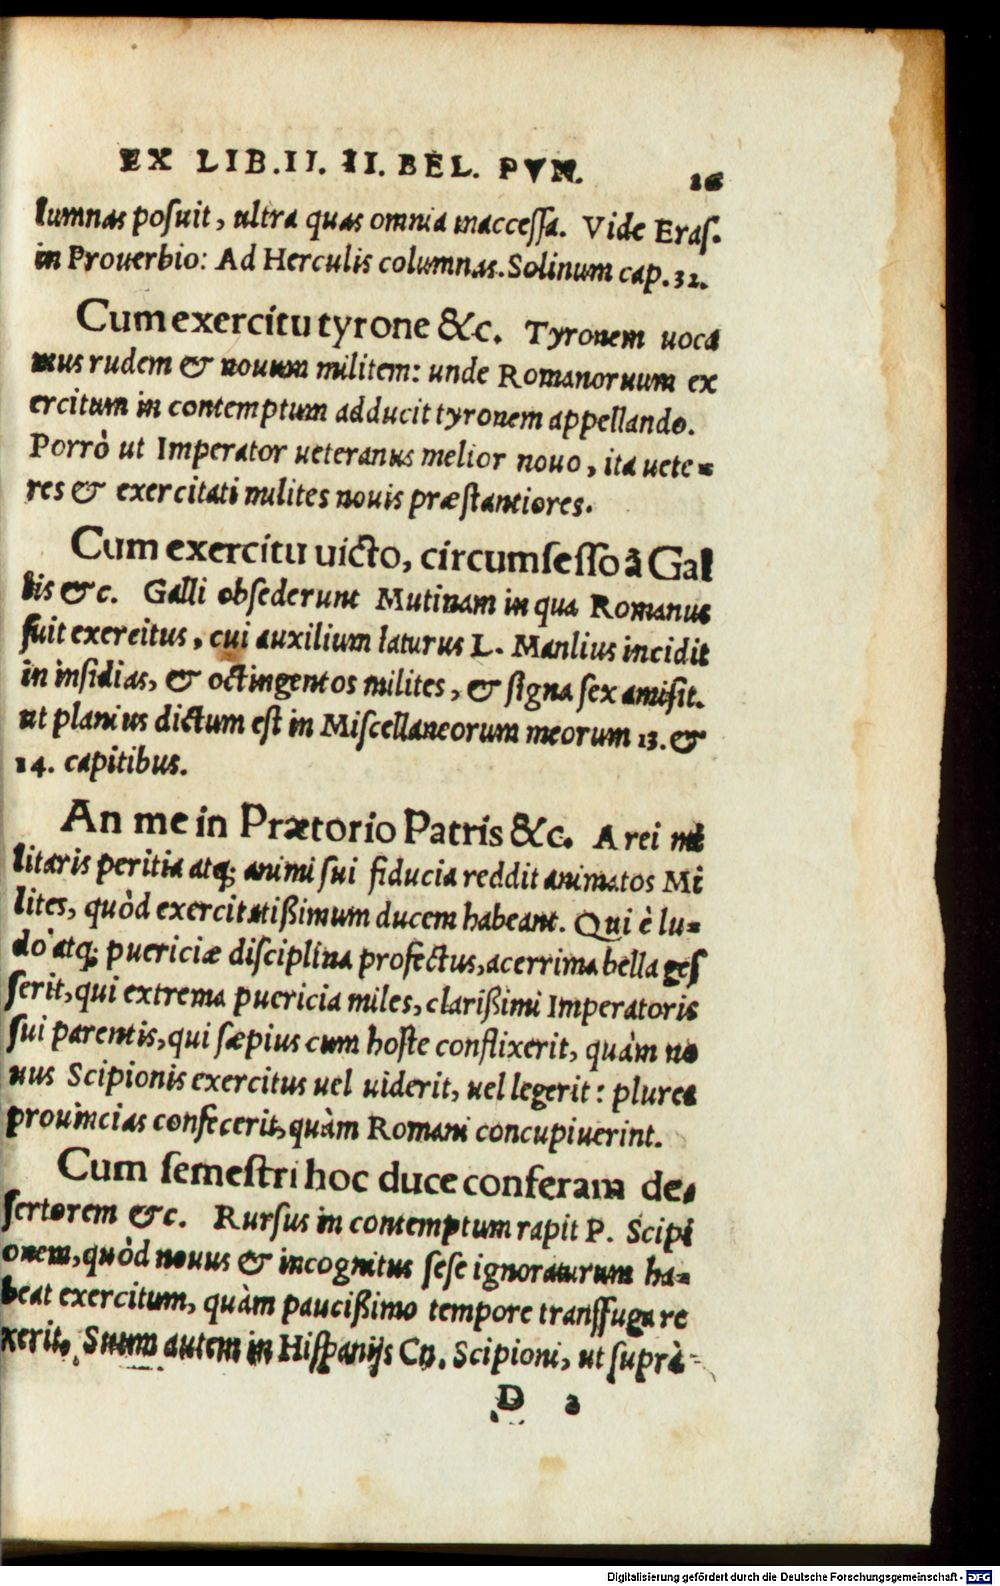 EX LIB.II. II. BEL. PVN. 26
lumnas posuit, ultra quas omnia inaccessa. Vide Eras.
in Prouerbio: Ad Herculis columnas. Solinum cap. 32.
Cum exercitu tyrone &c. Tyronem uoca
mus rudem & nouum militem: unde Romanoruum ex
ercitum in contemptum adducit tyronem appellando.
Porrò ut Imperator ueteranus melior nouo, ita uete=
res & exercitati milites nouis præstantiores.
Cum exercitu uicto, circumsesso à Gal
lis &c. Galli obsederunt Mutinam in qua Romanus
fuit exereitus, cui auxilium laturus L. Manlius incidit
in insidias, & octingentos milites, & signa sex amisit.
ut planius dictum est in Miscellaneorum meorum 13. &
14. capitibus.
An me in Prætorio Patris &c. A rei mi
litaris peritia atq; animi sui fiducia reddit animatos Mi
lites, quòd exercitatißimum ducem habeant. Qui è lu=
do atq; puericiæ disciplina profectus, acerrima bella ges
serit, qui extrema puericia miles, clarißimi Imperatoris
sui parentis, qui sæpius cum hoste conflixerit, quàm no
uus Scipionis exercitus uel uiderit, uel legerit: plures
prouincias confecerit, quàm Romani concupiuerint.
Cum semestri hoc duce conferam de=
sertorem &c. Rursus in contemptum rapit P. Scipi
onem, quòd nouus & incognitus sese ignoraturum ha=
beat exercitum, quàm paucißimo tempore transfuga re
xerit. Suum autem in Hispanijs Cn. Scipioni, ut suprà
D 2
Digitalisierung gefördert durch die Deutsche Forschungsgemeinschaft - DFG